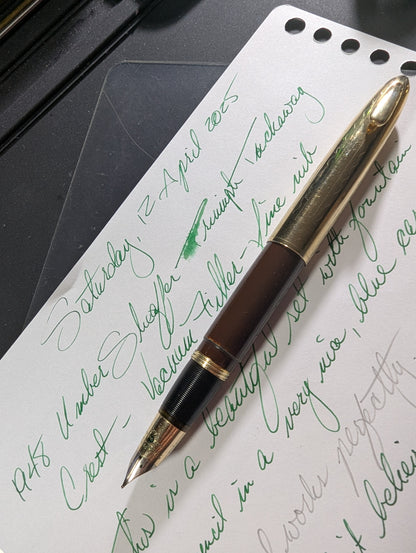 Saturday, 12 April 2025
1948 Umber Sheaffer Triumph Tuckaway
Crest - Vacuum Filler - fine nib
This is a beautiful set with fountain
in a very nice, blue
works perfectly
believe